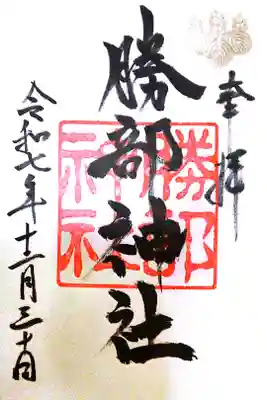 奉拝
勝部神社
勝部
神社
令和七年十二月三十日